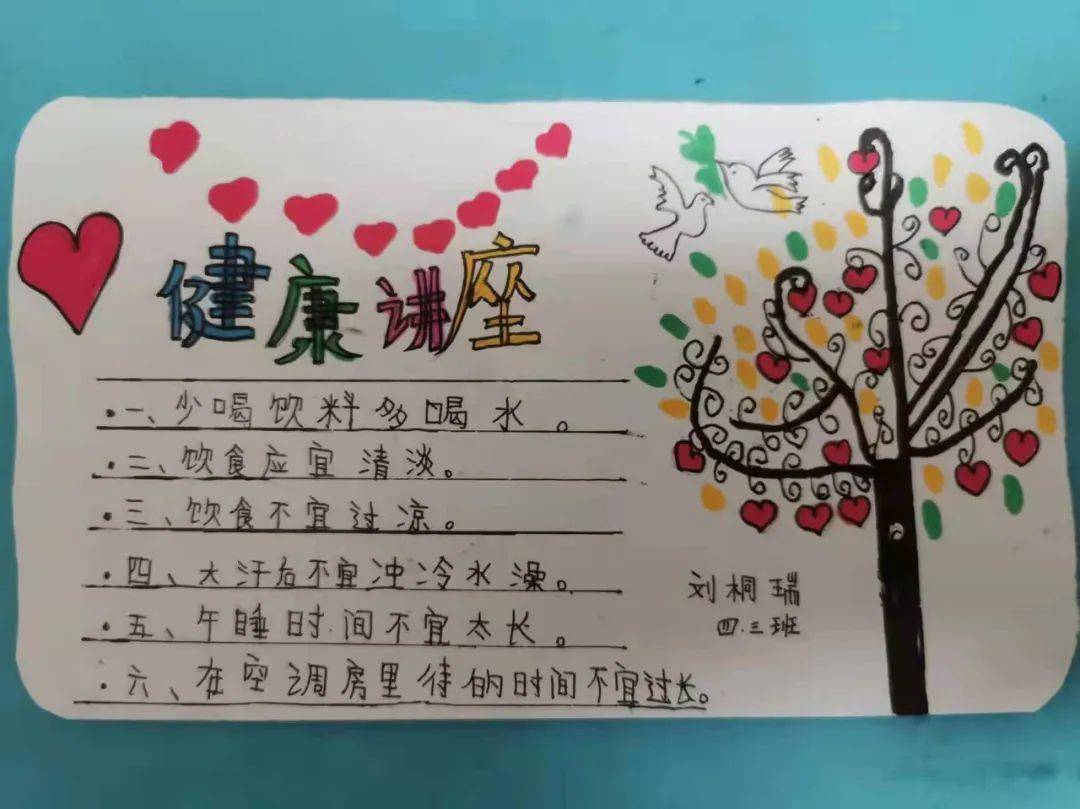 健康讲座
·一、少喝饮料多喝水。
·二、饮食应宜清淡。
·三、饮食不宜过凉。
·四、大汗后不宜冲冷水澡。
·五、午睡时间不宜太长。
·六、在空调房里待的时间不宜过长。
刘桐瑞
四.三班